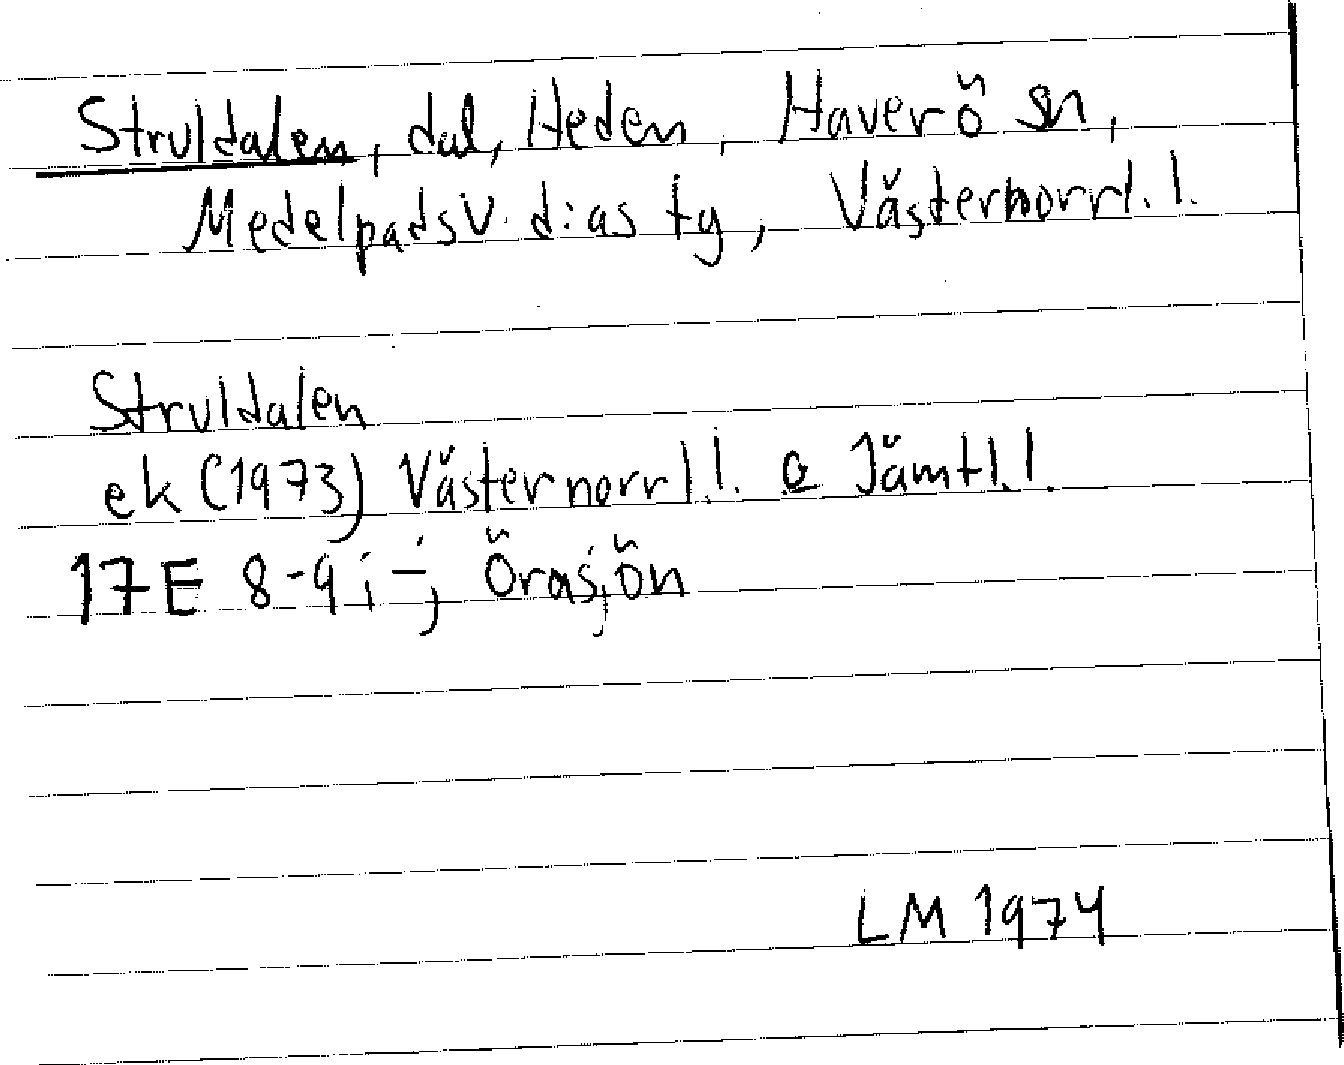 Struldalen, dal, Heden, Haverö sn,
Medelpads v. d:as tg, Västernorrl. l.
Struldalen
ek (1973) Västernorrl. l. o Jämtl. l.
17E 8-9 i-j Örasjön
LM 1974